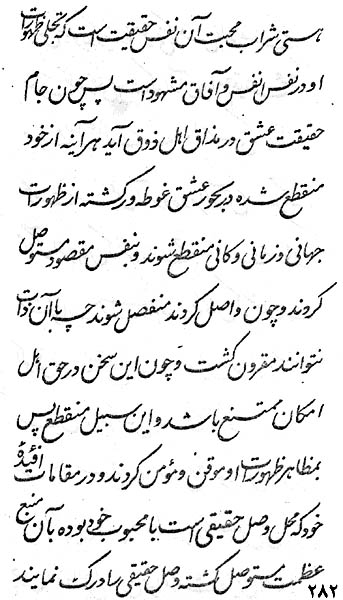 هستی شراب محبت آن نفس حقیقیت است که تجلی ظهورات
او در نفس انفس و آفاق مشهود است پس چون جام
حقیقت عشق در مذاق اهل ذوق آید هر آینه از خود
منقطع شده در بحور عشق غوطه ور گشته از ظهورات
جهانی و زمانی و کانی منقطع شوند و بنفس مقصود متوصل
گردند و چون واصل گردند منفصل شوند چه با آن ذات
نتوانند مقرون گشت و چون این سخن در حق اهل
امکان ممتنع باشد و این سبیل منقطع پس
بمظاهر ظهورات او موقن و مؤمن گردند و در مقامات افئدهٔ
خود که محل وصل حقیقی است با محبوب خود بوده بآن منبع
عظمت متوصل گشته وصل حقیقی را درک نمایند
۲۸۲